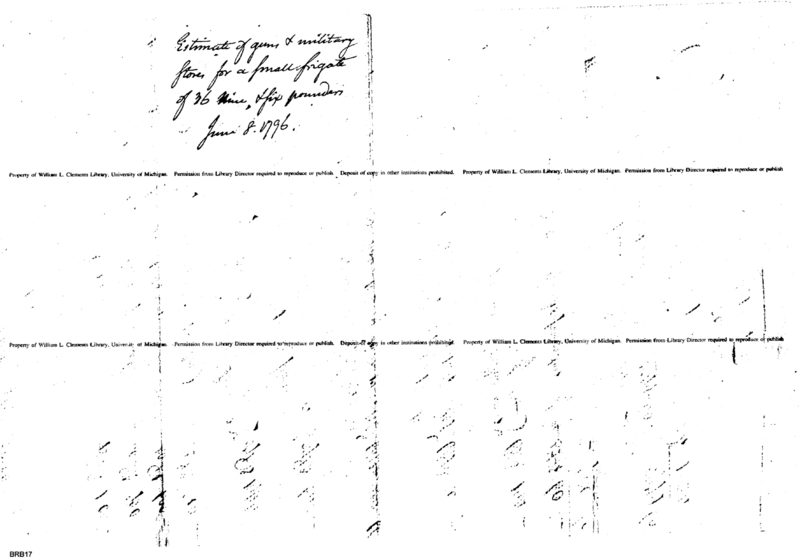 Estimate of guns & military
Stores for a small frigate
of 36 Nine, & six pounders
June 8. 1796.
Property of William L. Clements Library, University of Michigan. Permission from Library Director required to reproduce or publish. Deposit of copy in other institutions prohibited. Property of William L. Clements Library, University of Michigan. Permission from Library Director required to reproduce or publish
Property of William L. Clements Library, University of Michigan. Permission from Library Director required to reproduce or publish. Deposit of copy in other institutions prohibited. Property of William L. Clements Library, University of Michigan. Permission from Library Director required to reproduce or publish
BRB17